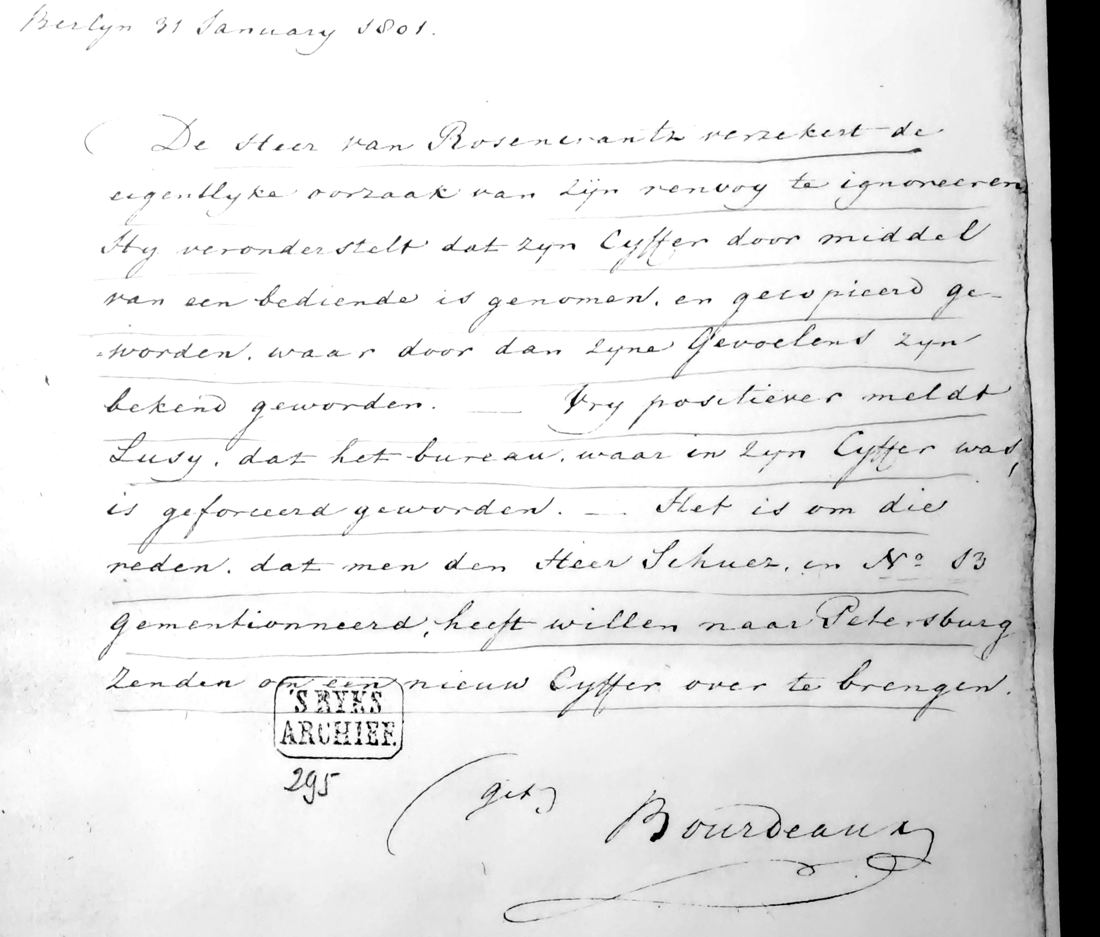 Berlyn 31 January 1801.
De Heer van Rosencrantz verzekert de
eigentlyke oorzaak van zÿn renvoy te ignoreeren
Hy veronderstelt dat zyn Cyffer door middel
van een bediende is genomen, en gecopieerd ge-
worden, waar door dan zyne Gevoelens zyn
bekend geworden. — Vry positiever meldt
Lusy, dat het bureau, waar in zyn Cyffer was,
is geforceerd geworden. — Het is om die
reden, dat men den Heer Schuez, in No 13
gementionneerd, heeft willen naar Petersburg
zenden om een nieuw Cyffer over te brengen.
'S RYKS
ARCHIEF.
295
(get)
Bourdeaux